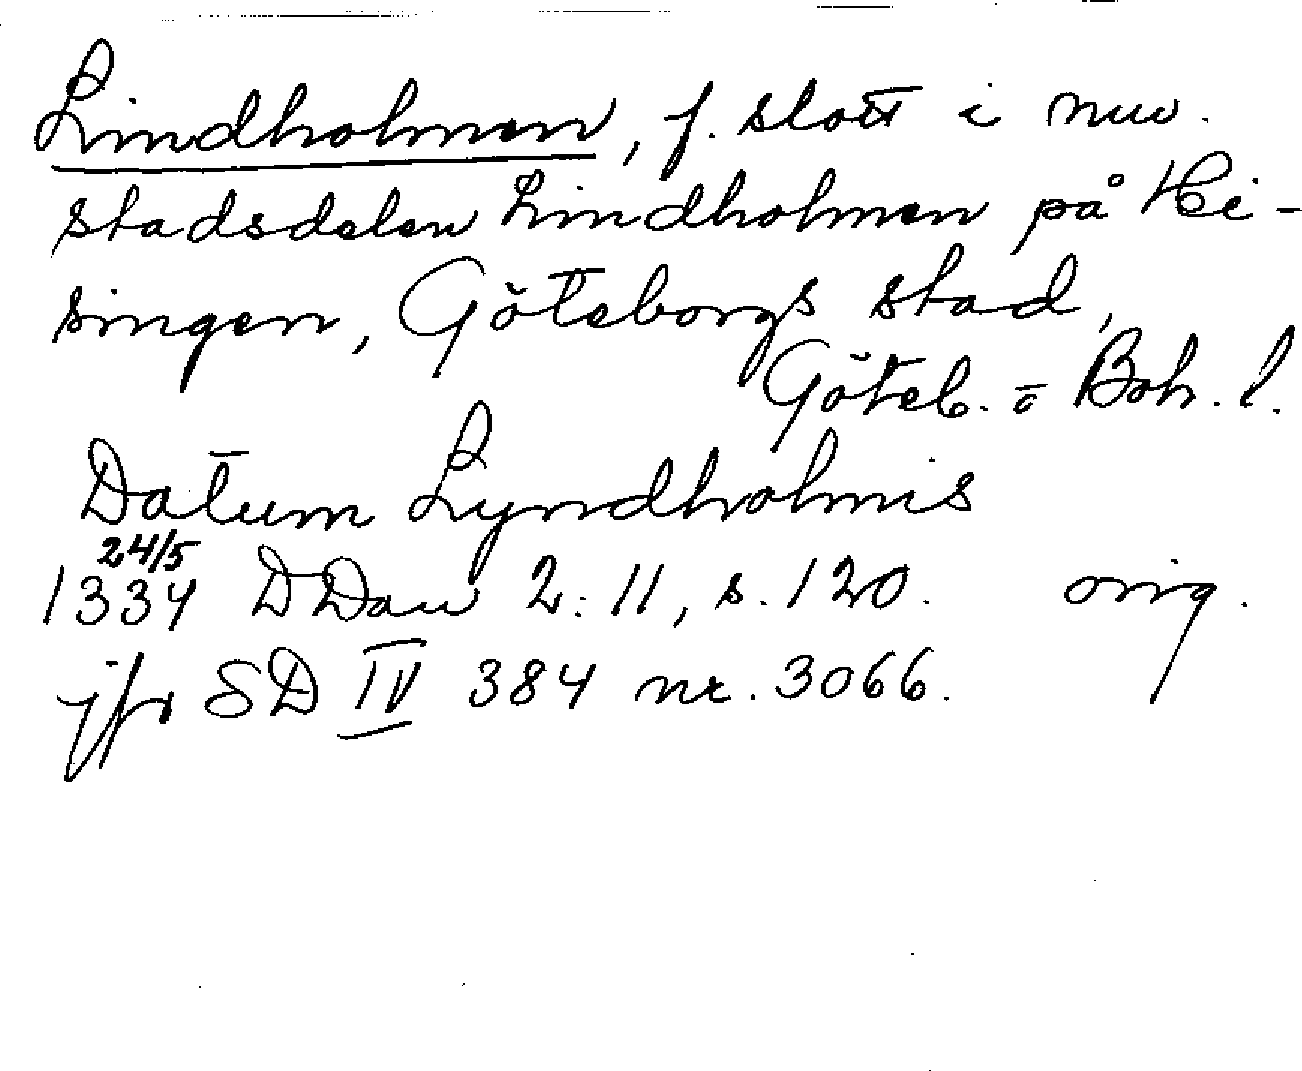 Lindholmen, f. slott i nuv.
stadsdelen Lindholmen på Hi-
singen, Göteborgs stad,
Göteb. o Boh. l.
Datum Lyndholmis
24/5
1334 DDan 2:11, s. 120. orig.
jfr SD IV 384 nr. 3066.